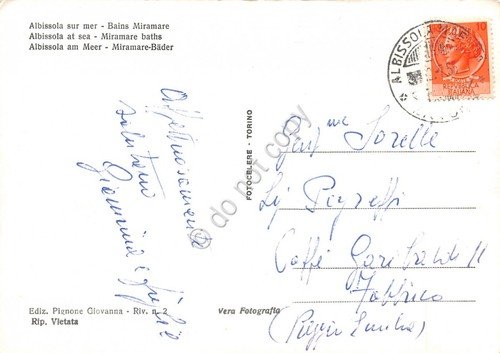 Albissola sur mer - Bains Miramare
Albissola at sea - Miramare baths
Albissola am Meer - Miramare-Bäder
Affettuosamente
salutano
Giannina e figlie
FOTOCELERE - TORINO
© do not copy
ALBISSOLA
10
REPUBBLICA
ITALIANA
Sorelle
Caffè Garibaldi 11
Fabbrico
(Reggio Emilia)
Ediz. Pignone Giovanna - Riv. n. 2
Rip. Vietata
Vera Fotografia